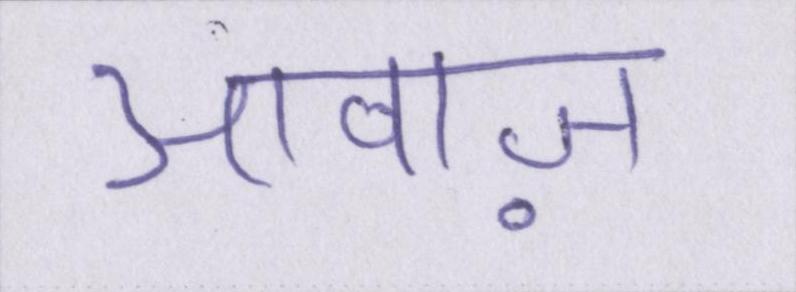 आवाज़